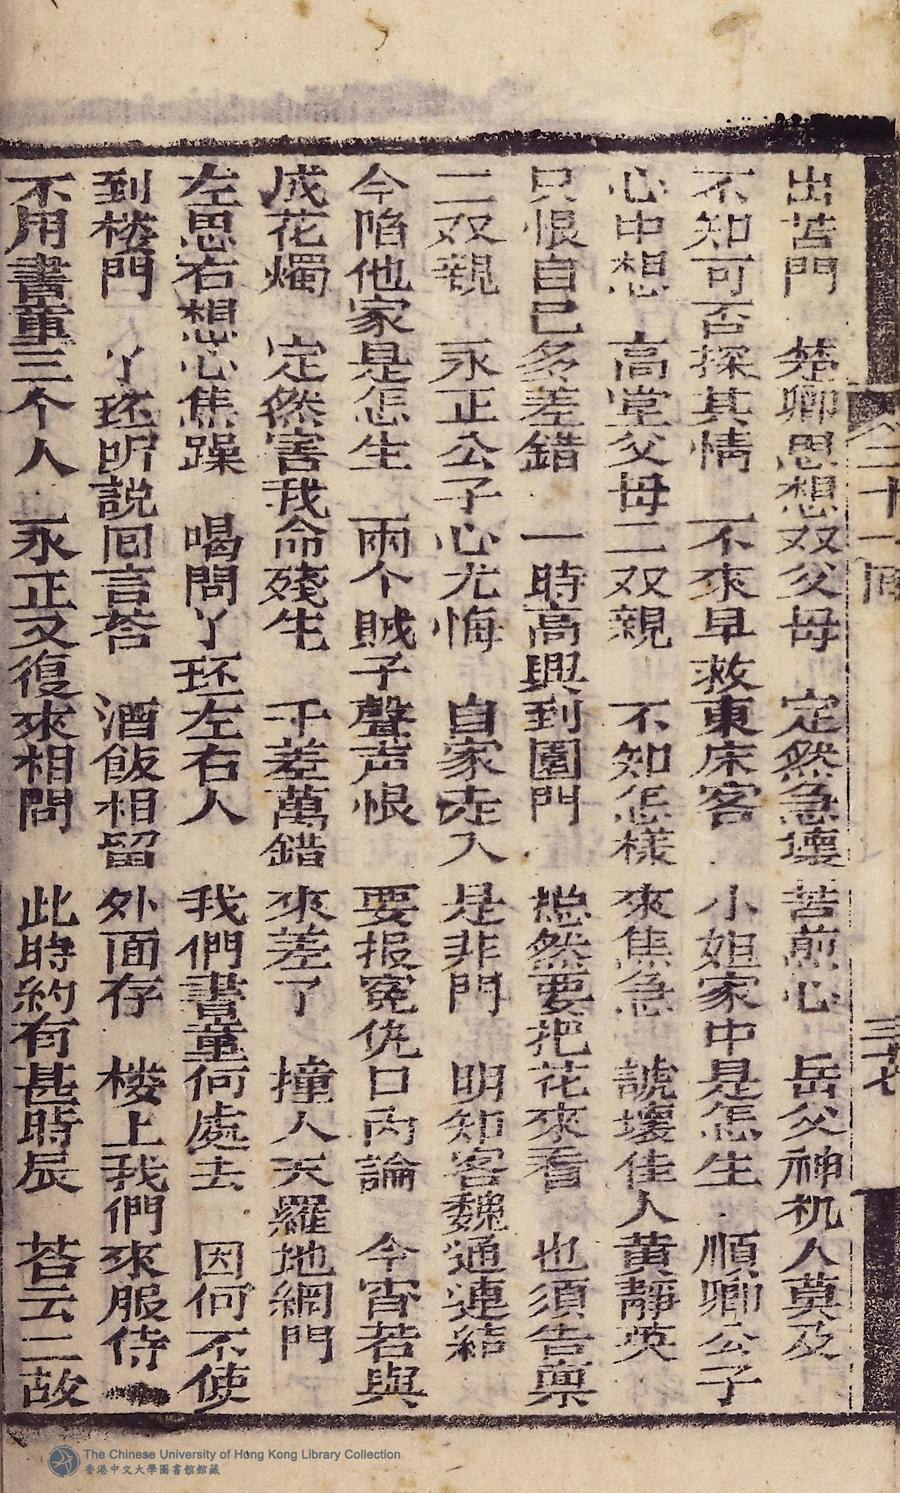 二十一回 三十七
出苦門 楚卿思想双父母 定然急壞苦煎心 岳父神机人莫及
不知可否探其情 不來早救東床客 小姐家中是怎生 順卿公子
心中想 高堂父母二双親 不知怎樣來焦急 諕壞佳人黄靜英
只恨自己多差錯 一時高興到園門 総然要把花來看 也須告禀
二双親 永正公子心尤悔 自家走入是非門 明知客魏通連結
今陷他家是怎生 兩个賊子聲声恨 要报寃仇口内論 今宵若與
成花燭 定然害我命殘生 千差萬錯來差了 撞入天羅地網門
左思右想心焦躁 喝問丫环左右人 我們書童何處去 因何不使
到楼門 丫环明説囬言荅 酒飯相留外面存 楼上我們來服侍
不用書童三个人 永正又復來相問 此時約有甚時辰 荅云二故
The Chinese University of Hong Kong Library Collection
香港中文大學圖書館館藏